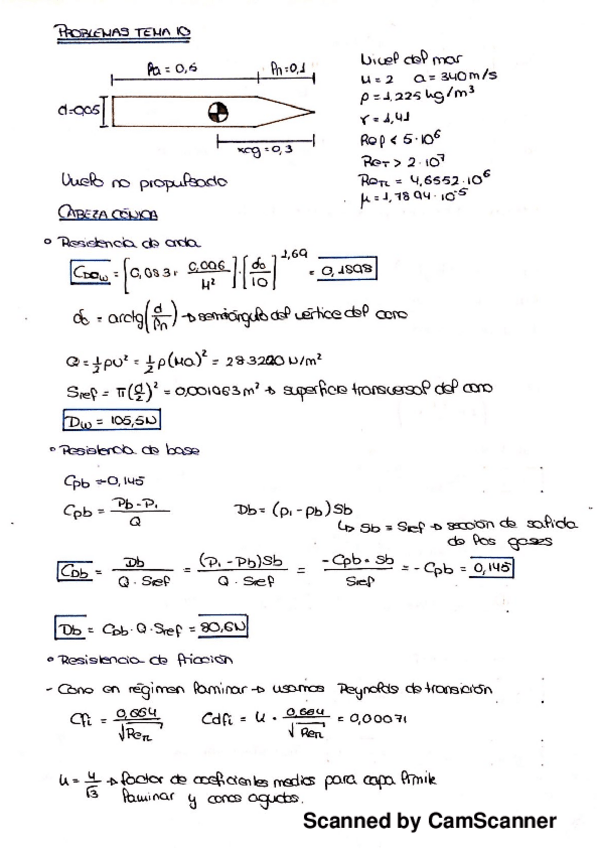 PROBLEMAS TEMA 10
la = 0,6
ln = 0,1
d=0,05
xcg = 0,3
Nivel del mar
M = 2 a = 340 m/s
ρ = 1,225 kg/m³
γ = 1,41
Rel < 5·10⁶
ReT > 2·10⁷
ReTL = 4,6552·10⁶
μ = 1,7894·10⁻⁵
Vuelo no propulsado
CABEZA CÓNICA
° Resistencia de onda
CDOW = [0,083 + 0,096/M²]·[δc/10]^1,69 = 0,1898
δc = arctg(d/ln) → semiángulo del vértice del cono
Q = ½ρU² = ½ρ(Ma)² = 283220 N/m²
Sref = π(d/2)² = 0,001963 m² → superficie transversal del cono
DW = 105,5N
° Resistencia de base
Cpb = -0,145
Cpb = (Pb - P1)/Q Db = (P1 - Pb)Sb
↳ Sb = Sref → sección de salida
de los gases
CDb = Db/(Q·Sref) = (P1 - Pb)Sb/(Q·Sref) = -Cpb·Sb/Sref = -Cpb = 0,145
Db = CDb·Q·Sref = 80,6N
° Resistencia de fricción
- Cono en régimen laminar → usamos Reynolds de transición
Cfi = 0,664/√ReTL Cdfi = K · 0,664/√ReTL = 0,00071
K = 4/√3 → factor de coeficientes medios para capa límite
laminar y conos agudos.
Scanned by CamScanner